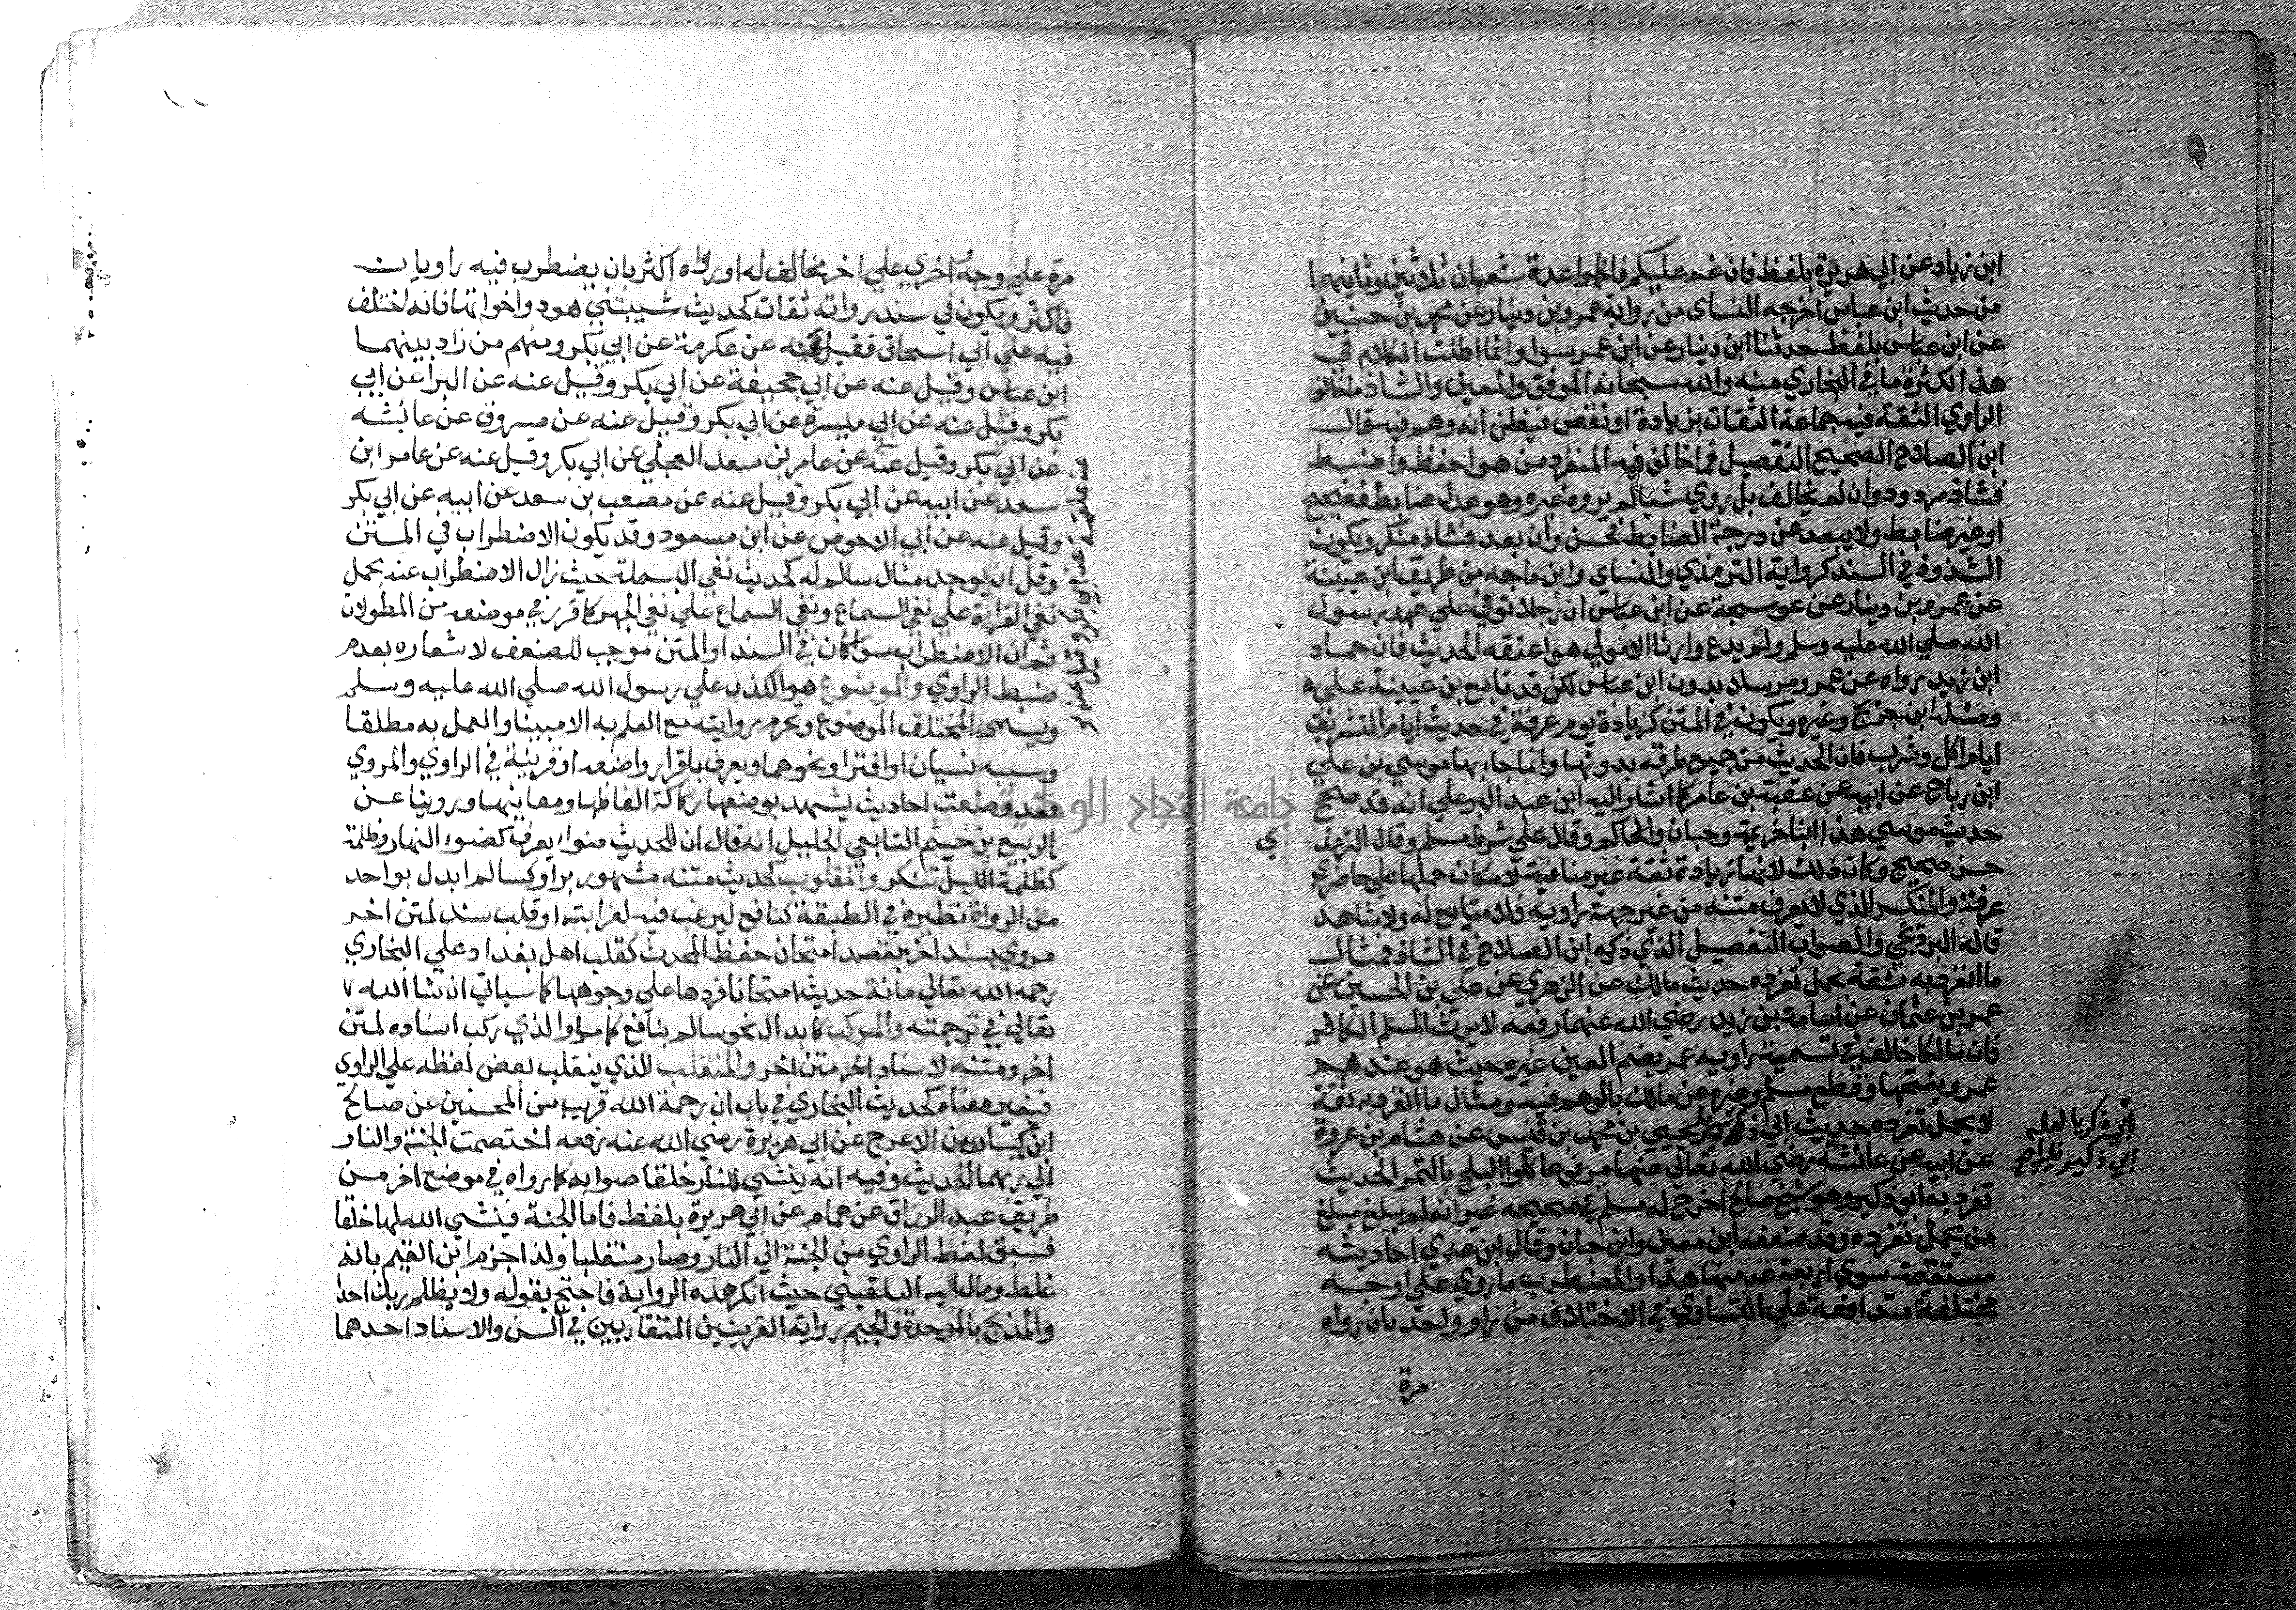 ابن زياد عن ابي هريرة بلفظ فان غم عليكم فاكملوا عدة شعبان ثلاثين وثانيهما
من حديث ابن عباس اخرجه النساى من رواية عمرو بن دينار عن محمد بن حنين
عن ابن عباس بلفظ حدثنا ابن دينار عن ابن عمر سوا وانما اطلت الكلام في
هذا لكثرة ما في البخاري منه والله سبحانه الموفق والمعين والشاذ ما خالف
الراوي الثقة فيه جماعة الثقات بزيادة او نقص فيظن انه وهم فيه قال
ابن الصلاح الصحيح التفصيل فما خالف فيه المنفرد من هو احفظ واضبط
فشاذ مردود وان لم يخالف بل روي شيا لم يروه غيره وهو عدل ضابط فصحيح
او غير ضابط ولا يبعد عن درجة الضابط فحسن وان بعد فشاذ منكر ويكون
الشذوذ في السند كرواية الترمذي والنساي وابن ماجه من طريق ابن عيينة
عن عمرو بن دينار عن عوسجة عن ابن عباس ان رجلا توفي علي عهد رسول
الله صلي الله عليه وسلم ولم يدع وارثا الا مولي هو اعتقه الحديث فان حماد
ابن زيد رواه عن عمرو مرسلا بدون ابن عباس لكن قد تابع بن عيينة علي
وصله ابن جريج وغيره ويكون في المتن كزيادة يوم عرفة في حديث ايام التشريق
ايام اكل وشرب فان الحديث من جميع طرقه بدونها وانما جاء بها موسي بن علي
ابن رباح عن ابيه عن عقبة بن عامر كما اشار اليه ابن عبد البر علي انه قد صحح
حديث موسي هذا ابنا خزيمة وحبان والحاكم وقال علي شرط مسلم وقال الترمذ
ي
حسن صحيح وكان ذلك لانها زيادة ثقة غير منافية لامكان حملها علي حاضري
عرفة والمنكر الذي لا يعرف متنه من غير جهة راويه فلا متابع له ولا شاهد
قاله البرديجي والصواب التفصيل الذي ذكره ابن الصلاح في الشاذ فمثال
ما انفرد به ثقة يحمل تفرده حديث مالك عن الزهري عن علي بن الحسين عن
عمر بن عثمان عن اسامة بن زيد رضي الله عنهما رفعه لا يرث المسلم الكافر
فان مالكا خالف في تسمية راويه عمر بضم العين غيره حيث هو عندهم
عمرو بفتحها وقطع مسلم وغيره عن مالك بالوهم فيه ومثال ما انفرد به ثقة
لا يحمل تفرده حديث ابي يحيي بن محمد بن قيس عن هشام بن عروة
عن ابيه عن عائشة رضي الله تعالي عنها مرفوعا كلوا البلح بالتمر الحديث
تفرد به ابو زكير وهو شيخ صالح اخرج له مسلم في صحيحه غير انه لم يبلغ مبلغ
من يحمل تفرده وقد ضعفه ابن معين وابن حبان وقال ابن عدي احاديثه
مستقيمة سوي اربعة عد منها هذا والمضطرب ما روي علي اوجه
مختلفة متدافعة علي التساوي في الاختلاف من راو واحد بان رواه
مرة
زكريا لعله
ابي زكير
مرة علي وجه اخري علي اخر مخالف له او رواه اكثر بان يضطرب فيه راويان
فاكثر ويكون في سند رواته ثقات كحديث شيبتني هود واخواتها فانه اختلف
فيه علي ابي اسحاق فقيل عنه عن عكرمة عن ابي بكر ومنهم من زاد بينهما
ابن عباس وقيل عنه عن ابي جحيفة عن ابي بكر وقيل عنه عن البرا عن ابي
بكر وقيل عنه عن ابي ميسرة عن ابي بكر وقيل عنه عن مسروق عن عائشه
عن ابي بكر وقيل عنه عن عامر بن سعد البجلي عن ابي بكر وقيل عنه عن عامر ابن
سعد عن ابيه عن ابي بكر وقيل عنه عن مصعب بن سعد عن ابيه عن ابي بكر
وقيل عنه عن ابي الاحوص عن ابن مسعود وقد يكون الاضطراب في المتن
وقل ان يوجد مثال سالم له كحديث نفي البسملة حيث زال الاضطراب عنه بحمل
نفي القراءة علي نفي السماع ونفي السماع علي نفي الجهر كما قرر في موضعه من المطولات
ثم ان الاضطراب سوا كان في السند او المتن موجب للضعف لاشعاره بعدم
ضبط الراوي والموضوع هو الكذب علي رسول الله صلي الله عليه وسلم
ويسمى المختلف الموضوع وتحرم روايته مع العلم به الا مبينا والعمل به مطلقا
وسببه نسيان او افترا ونحوهما ويعرف باقرار واضعه او قرينة في الراوي والمروي
فقد وضعت احاديث يشهد بوضعها ركاكة الفاظها ومعاينها وروينا عن
الربيع بن خيثم التابعي الجليل انه قال ان للحديث ضوا يعرف كضوء النهار وظلمة
كظلمة الليل تنكر والمقلوب كحديث متنه مشهور براو كسالم ابدل بواحد
من الرواة نظيره في الطبقة كنافع ليرغب فيه لغرابته او قلب سند لمتن اخر
مروي بسند اخر بقصد امتحان حفظ المحدث كقلب اهل بغداد علي البخاري
رحمه الله تعالي مائة حديث امتحانا فردها علي وجوهها كما سياتي ان شا الله
تعالي في ترجمته والمركب كابدال نحو سالم بنافع كما مر او الذي ركب اسناده لمتن
اخر ومتنه لاسناد اخر متن اخر والمنقلب الذي ينقلب بعض لفظه علي الراوي
فيتغير معناه كحديث البخاري في باب ان رحمة الله قريب من المحسنين عن صالح
ابن كيسان عن الاعرج عن ابي هريرة رضي الله عنه رفعه اختصمت الجنة والنار
الي ربهما الحديث وفيه انه ينشي للنار خلقا صوابه كما رواه في موضع اخر من
طريق عبد الرزاق عن همام عن ابي هريرة بلفظ فاما الجنة فينشي الله لها خلقا
فسبق لفظ الراوي من الجنة الي النار وصار منقلبا ولذا جزم ابن القيم بانه
غلط ومال اليه البلقيني حيث انكر هذه الرواية فاحتج بقوله ولا يظلم ربك احدا
والمدبج بالموحدة والجيم رواية القرينين المتقاربين في السن والاسناد احدهما
جامعة النجاح الوطنية